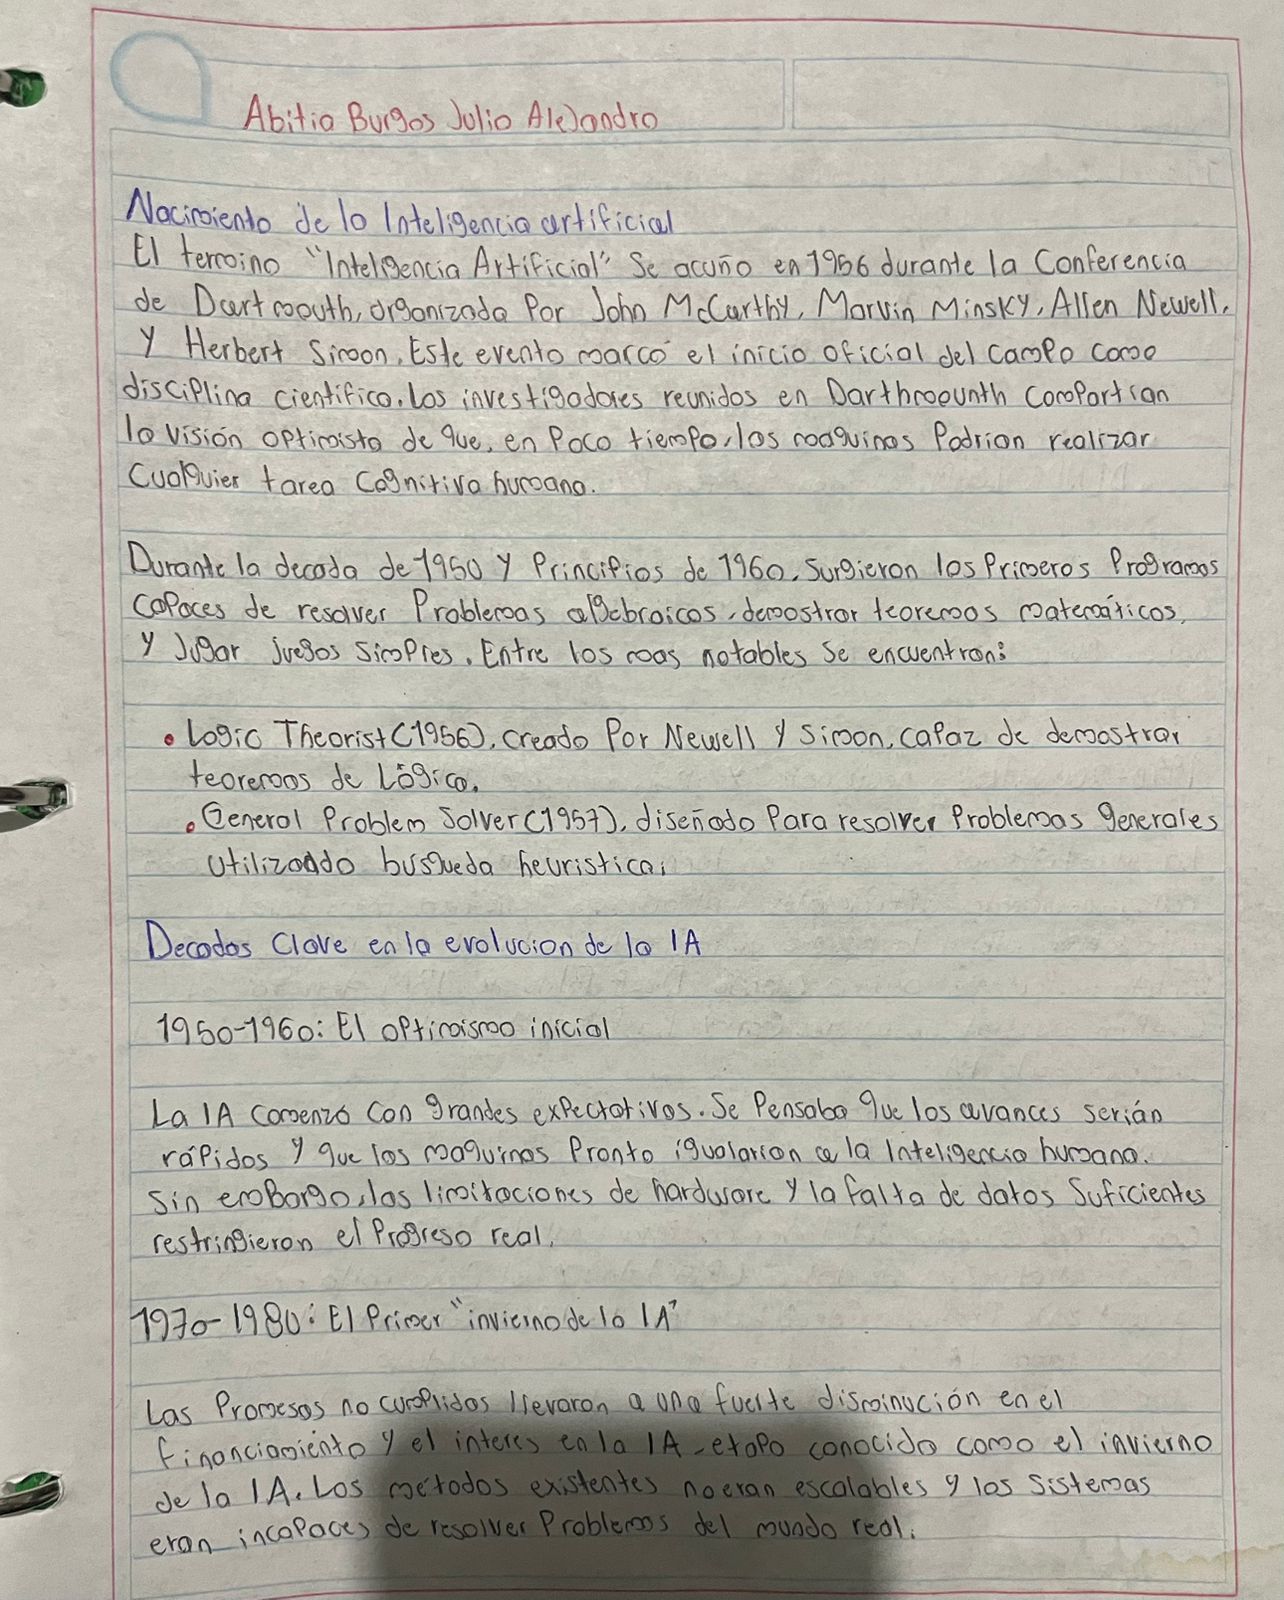 Abitia Burgos Julio Alejandro
Nacimiento de la Inteligencia artificial
El termino "Inteligencia Artificial" Se acuño en 1956 durante la Conferencia
de Dartmouth, organizada Por John McCarthy, Marvin Minsky, Allen Newell,
y Herbert Simon. Este evento marcó el inicio oficial del campo como
disciplina cientifica. Los investigadores reunidos en Darthmounth compartian
la visión optimista de que, en Poco tiempo, las maquinas Podrian realizar
Cualquier tarea Cognitiva humana.
Durante la decada de 1950 y Principios de 1960, Surgieron los Primeros Programas
capaces de resolver Problemas algebraicos, demostrar teoremas matemáticos,
y Jugar juegos Simples. Entre los mas notables Se encuentran:
• Logic Theorist (1956), creado Por Newell y Simon, capaz de demostrar
teoremas de Lógica.
• General Problem Solver (1957), diseñado Para resolver Problemas generales
Utilizando búsqueda heuristica.
Decadas Clave en la evolucion de la IA
1950-1960: El optimismo inicial
La IA comenzó Con grandes expectativas. Se Pensaba que los avances serián
rápidos y que las maquinas Pronto igualarian a la Inteligencia humana.
Sin emBargo, las limitaciones de hardware y la falta de datos Suficientes
restringieron el Progreso real.
1970-1980: El Primer "invierno de la IA"
Las Promesas no cumplidas llevaron a una fuerte disminución en el
financiamiento y el interes en la IA, etapa conocida como el invierno
de la IA. Los métodos existentes no eran escalables y los Sistemas
eran incapaces de resolver Problemas del mundo real.